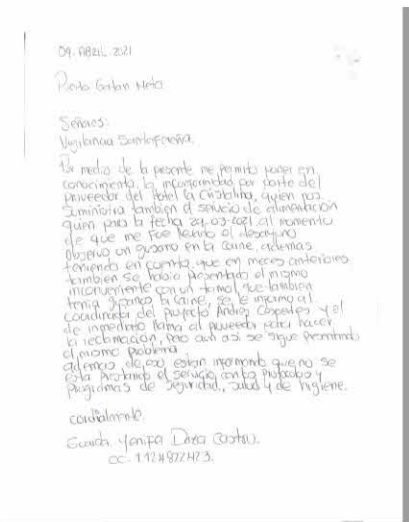 09. ABRIL 2021
Puerto Gaitan Meta
Señores:
Vigilancia Santafereña.
Por medio de la presente me permito poner en
conocimiento, la inconformidad por parte del
proveedor del Hotel la Cristalina, quien nos
Suministra tambien el servicio de alimentación
quien para la fecha 29-03-2021 al momento
de que me fue llevado el desayuno
Observo un gusano en la carne, ademas
teniendo en cuenta que en meses anteriores
tambien se habia presentado el mismo
inconveniente con un tamal, que tambien
tenia gusanos la carne, se le informo al
coordinador del proyecto Andres Cespedes y el
de inmediato llama al proveedor para hacer
la reclamación, pero aun asi se sigue presentando
el mismo problema
ademas de eso estan informando que no se
esta prestando el servicio con los protocolos y
programas de seguridad, salud y de higiene.
cordialmente.
Guarda Yenifa Daza Castro.
CC. 1124822423.